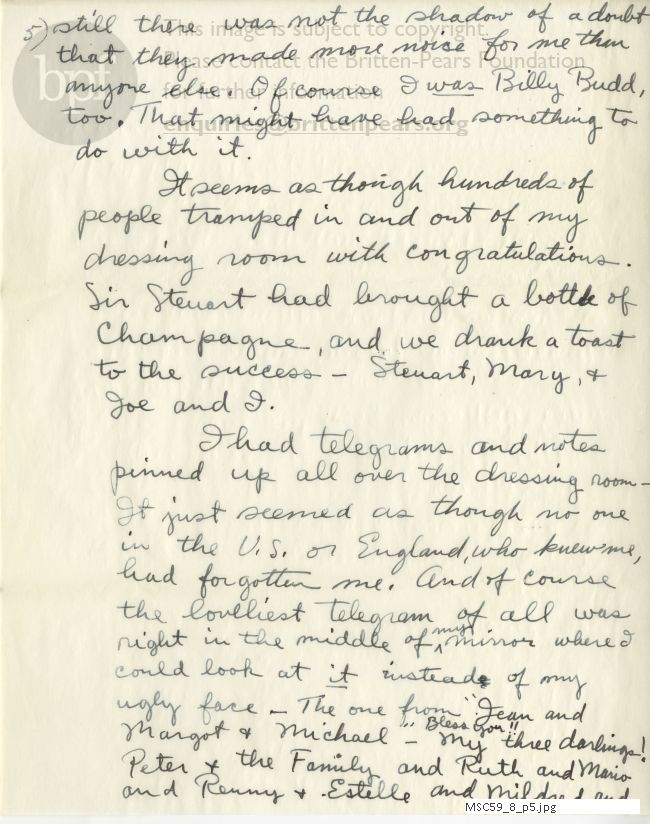 5) still there was not the shadow of a doubt
that they made more noice for me than
anyone else. Of course I was Billy Budd,
too. That might have had something to
do with it.
It seems as though hundreds of
people tramped in and out of my
dressing room with congratulations.
Sir Steuart had brought a bottle of
Champagne, and we drank a toast
to the success – Steuart, Mary, &
Joe and I.
I had telegrams and notes
pinned up all over the dressing room –
It just seemed as though no one
in the U.S. or England, who knew me,
had forgotten me. And of course
the lovelliest telegram of all was
right in the middle of my mirror where I
could look at it instead of my
ugly face – The one from "Jean and
Margot & Michael – "Bless you!" My three darlings!
Peter & the Family and Ruth and Mario
and Renny & Estelle and Mildred and
This image is subject to copyright.
Please contact the Britten-Pears Foundation
for further information
enquiries@brittenpears.org
bpf
MSC59_8_p5.jpg